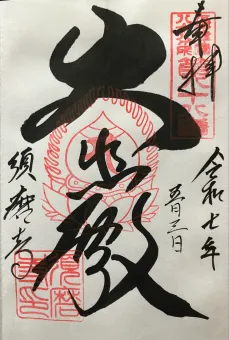 奉拝
令和七年
五月三日
大悲殿
須磨寺